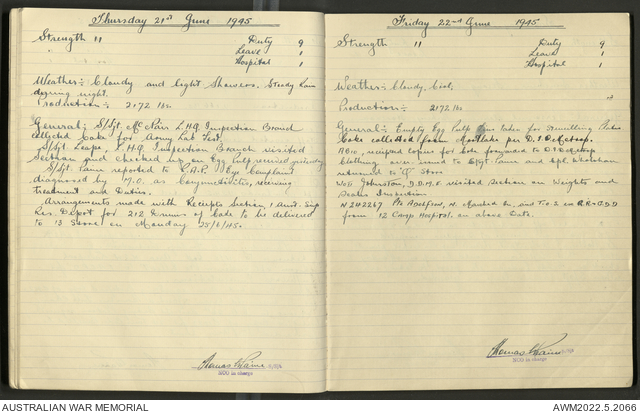 Thursday 21st June 1945
Strength 11 Duty 9
" Leave 1
Hospital 1
Weather:- Cloudy and light Showers. Steady Rain
during night.
Production:- 2172 lbs.
General:- S/Sgt. McNair L.H.Q. Inspection Branch
collected Cake for Army Lab Test.
S/Sgt Leape, L.H.Q. Inspection Branch visited
Section and checked up on Egg Pulp received
S/Sgt. Paine reported to R.A.P. Eye Complaint
diagnosed by M.O. as Conjunctivitis, receiving
treatment and Duties.
Arrangements made with Receipts Section, 1 Aust. Sup
Res. Depot for 212 Drums of to be delivered
to 13 Store on Monday 25/6/45.
Thomas Paine
NCO in charge
Friday 22nd June 1945
Strength 11 Duty 9
Leave 1
Hospital 1
Weather:- Cloudy, Cool.
Production:- 2172 lbs
General:- Empty Egg Pulp for
Cake collected from
A610, copies for forwarded to
Clothing issued to S/Sgt. Paine and Cpl.
returned to Store
WO11 Johnston, visited Section on Weights and
Scales Inspection
N242267 Pte Adolfson, N. Marched in and T.O.S. ex
from 12 Camp Hospital. on above Date.
Thomas Paine
NCO in charge
AUSTRALIAN WAR MEMORIAL
AWM2022.5.2066